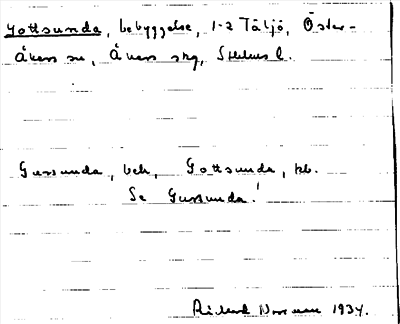 Gottsunda, bebyggelse, 1-2 Täljö, Öster-
Åkers sn, Åkers skg, Sthlms l.
Gussunda, bek, Gottsunda, kb.
Se Gussunda!
Rickard 1934.